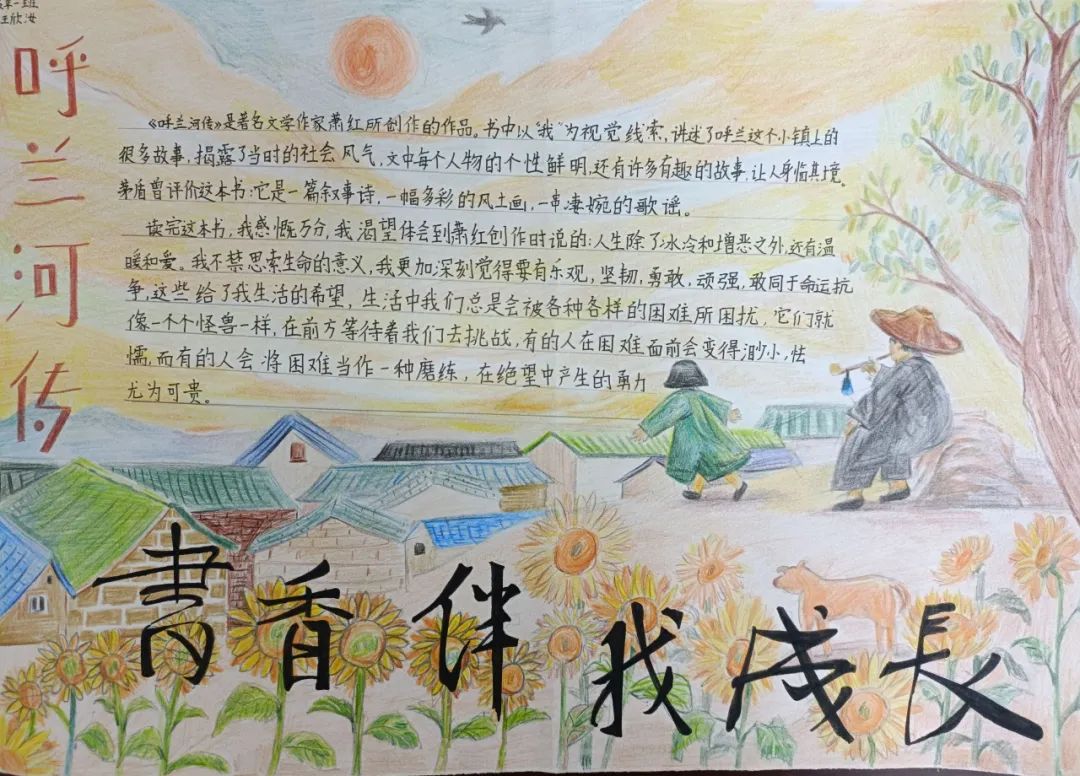 一班
王欣汝
呼兰河传
《呼兰河传》是著名文学作家萧红所创作的作品。书中以“我”为视觉线索，讲述了呼兰这个小镇上的
很多故事，揭露了当时的社会风气，文中每个人物的个性鲜明，还有许多有趣的故事，让人身临其境。
茅盾曾评价这本书：它是一篇叙事诗，一幅多彩的风土画，一串凄婉的歌谣。
读完这本书，我感慨万分，我渴望体会到萧红创作时说的：人生除了冰冷和增恶之外，还有温
暖和爱。我不禁思索生命的意义，我更加深刻觉得要有乐观，坚韧，勇敢，顽强，敢同于命运抗
争，这些给了我生活的希望，生活中我们总是会被各种各样的困难所困扰，它们就
像一个个怪兽一样，在前方等待着我们去挑战，有的人在困难面前会变得渺小，怯
懦，而有的人会将困难当作一种磨练，在绝望中产生的勇力
尤为可贵。
書香伴我成長